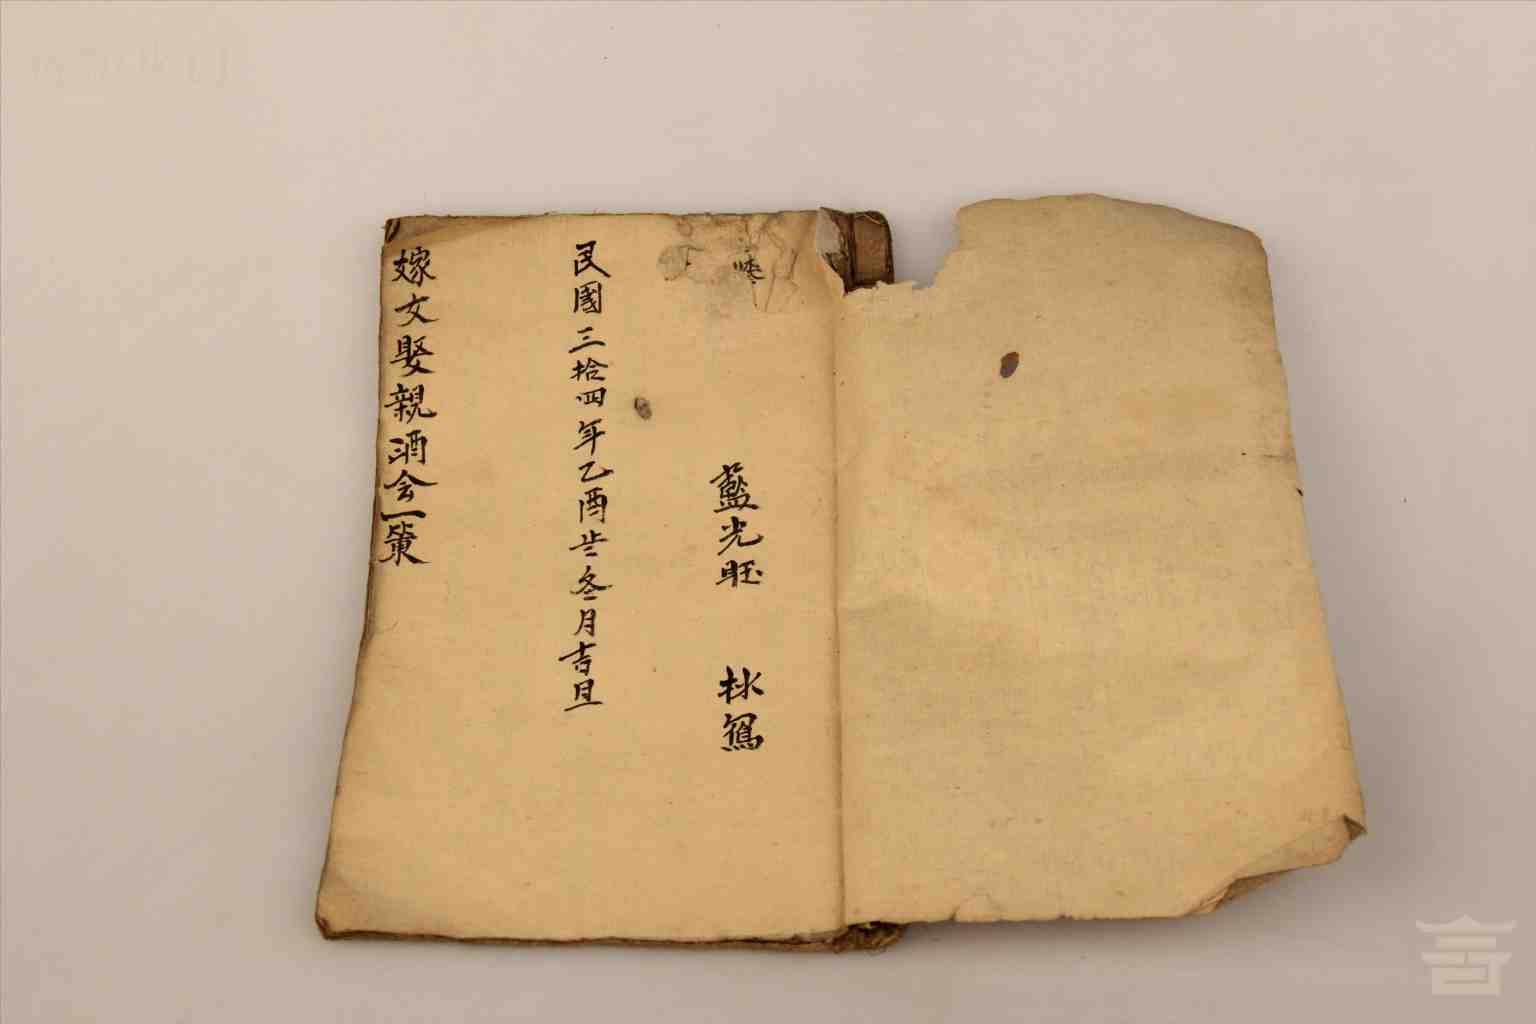 藍光旺 林
民國三拾四年乙酉歲冬月吉旦
嫁女娶親酒会一